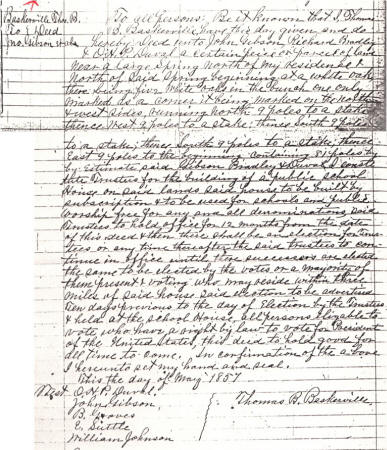 Baskerville Thos. B.
To } Deed
Jno. Gibson & als
To all persons: Be it known that I Thomas
B. Baskerville, have this day given and do
hereby Deed unto John Gibson, Richard Bradley
& O.H.P. Duval a certain piece or parcel of land
near a large Spring north of my residence &
North of said Spring beginning at a white oak
there being five white oaks in the bunch one only
marked as a corner it being marked on the north
& west sides, running north 9 poles to a stake
thence West 9 poles to a stake; thence South 9 poles
to a stake; thence South 9 poles to a stake; thence
East 9 poles to the beginning containing 81 poles by
by estimate said Gibson Bradley & Duval to consti
tute Trustees for the building of a public school
House on said lands said house to be built by
subscription & to be used for schools and public
worship free for any and all denominations said
trustees to hold office for 12 months from the date
of this deed & then there shall be an election for Trus
tees or any time thereafter the said trustees to con
tinue in office until those successors are elected
the same to be elected by the votes or a majority of
them present & voting who may reside within three
miles of said house said election to be advertised
ten days previous to the day of Election by the Trustees
& held at the school House, all persons eligable to
vote who have a right by law to vote for President
of the United States, this deed to hold good for
all time to come. In confirmation of the above
I hereunto set my hand and seal.
This the day of May 1857
Attest O.H.P. Duval.
John Gibson. Thomas B. Baskerville.
B. Graves
E. Suttle
William Johnson